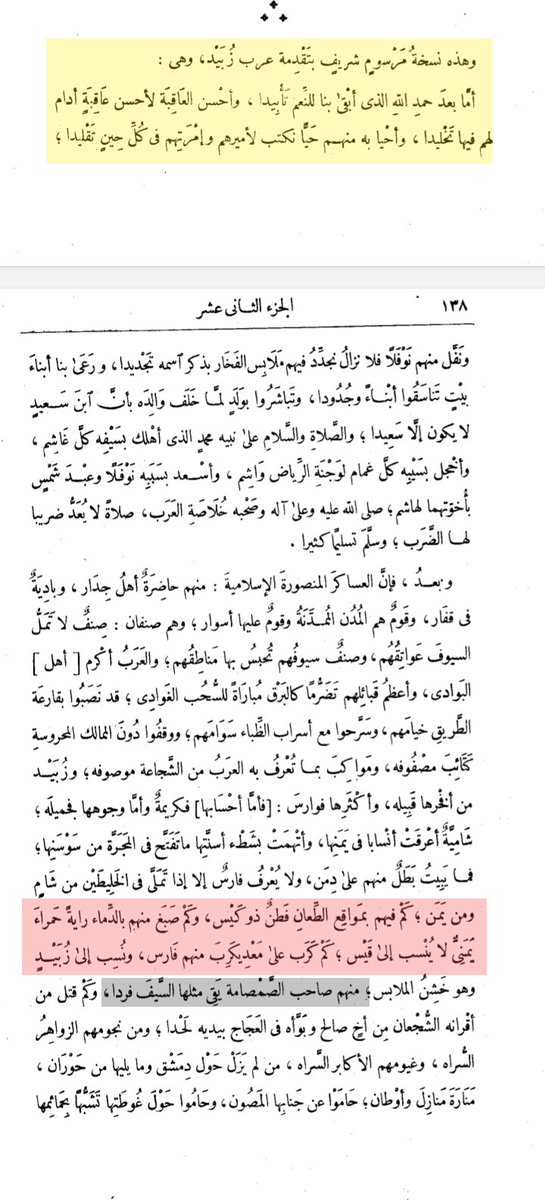 وهذه نسخةُ مَرْسومٍ شريفٍ بتَقْدِمة عرب زُبَيْد، وهى :
أمَّا بعدَ حمدِ اللهِ الذى أبْقىٰ بنا للنِّعم تَأْبِيدا ، وأحْسن العَاقِبَة لأحسن عاقِبَةٍ أدام
لهم فيها تَخْلِيدا ، وأحْيا به منهم حَيًّا نكتب لأميرهم وإمْرَتِهِم فى كُلِّ حِينٍ تَقْلِيدا ؛
١٣٨ الجزء الثانى عشر
ونَفَّل منهم نَوْفَلًا فلا نزالُ نجدِّدُ فيهم مَلابِس الفَخَار بذكر اسمه تَجْدِيدا ، ورَعَىٰ بنا أبناءَ
بيْتٍ تَنَاسَقُوا أبْنـاءً وجُدُودا، وتَباشَرُوا بوَلَدٍ لمَّا خَلَف وَالِدَه بأنَّ ابنَ سَـعيدٍ
لا يكون إلَّا سَعِيدا ؛ والصَّلاةِ والسَّلامِ علىٰ نبيه محمدٍ الذى أهلك بسَيْفِه كلَّ غَاشِم ،
وأخْجل بسَيْبِه كلَّ غمام لوَجْنَةِ الرِّياض وَاشِم ، وأسْـعد بسَبَبِه نَوْفَلًا وعبْـدَ شَمْسٍ
بأُخوّتهما لهاشم ؛ صلى الله عليه وعلىٰ آله وصَحْبه خُلَاصةِ العَرَب، صلاةً لا يُعَدُّ ضَريبا
لهـا الضَّرَب ؛ وسلَّم تسليما كثيرا .
وبعـدُ ، فإنَّ العساكرَ المنصورةَ الإسلاميةَ : منهم حاضِرَةٌ أهلُ جِدَار، وبادِيَةٌ
فى قفار، وقَومٌ هم المُدن المُمدَّنَةُ وقومٌ عليها أسوار ؛ وهم صنفان : صِنفٌ لا تَمَلُّ
السيوفَ عَواتِقُهُم ، وصنفٌ سيوفُهم تُحبسُ بها مناطِقُهم ؛ والعَرَبُ أكرم [ أهل ]
البَوادى، وأعظمُ قبائِلِهم تَضَرُّما كالبَرْق مُباراةً للسُّحُب الغَوَادِى ؛ قد نَصَبُوا بقارعَة
الطَّرِيق خيامَهم ، وسَرَّحوا مع أسراب الظِّباء سَوَامَهم ؛ ووقفُوا دُونَ الممالك المحروسة
كَتائِبَ مصْفُوفه ، ومَواكِبَ بمـا تُعْرَف به العرَبُ من الشَّجاعة موصوفه ؛ وزُبَيْـد
من أفخرها قَبيله ، وأكثَرِها فوارسَ : [فأمَّا أحْسَابها] فكَرِيمةٌ وأمَّا وجوهها فجميلَه ؛
شَامِيَّةٌ أعْرَقتْ أنْسابا فى يَمَنِها، وأتْهَمتْ بشَطْء أسنَّتِها ما تَفَتَّح فى المجَرَّة من سَوْسَنِها؛
فما يَبِيتُ بَطَلٌ منهم علىٰ دِمَن، ولا يُعْرَف فارسٌ إلا إذا تَمَلَّى فى الخَلِيطَين من شَامٍ
ومن يَمَن ؛ كمْ فيهم بمَواقِع الطِّعانِ فَطنٌ ذو كَيْس، وكَمْ صَبَغ منهم بالدِّماء رايةً حَمراءَ
يَمنِيٌّ لا يُنْسب إلىٰ قَيْس ؛ كمْ كَرَب علىٰ مَعْدِيكَرِبَ منهم فَارس، ونُسِب إلىٰ زُبَيْـدٍ
وهو خَشِنُ الملابس؛ منهم صاحب الصَّمْصامة يَقِ مثلها السَّيفَ فردا ، وكَمْ قتل من
أقْرانه الشُّجْعان من أخٍ صالح وبَوَّأه فى العَجَاج بيديه لَحْدا ؛ ومن نجومهم الزواهرُ
السُّراه ، وغيومهم الأكابر السَّراه ، من لم يَزَلْ حَوْل دِمَشْق وما يليها من حَوْران ،
مَنَارَةَ مَنازِلَ وأوْطان؛ حَامَوْا عن جنابِها المَصُون، وحاموا حَوْل غُوطَتِها تَشَبُّهًا بِحَمائِمها